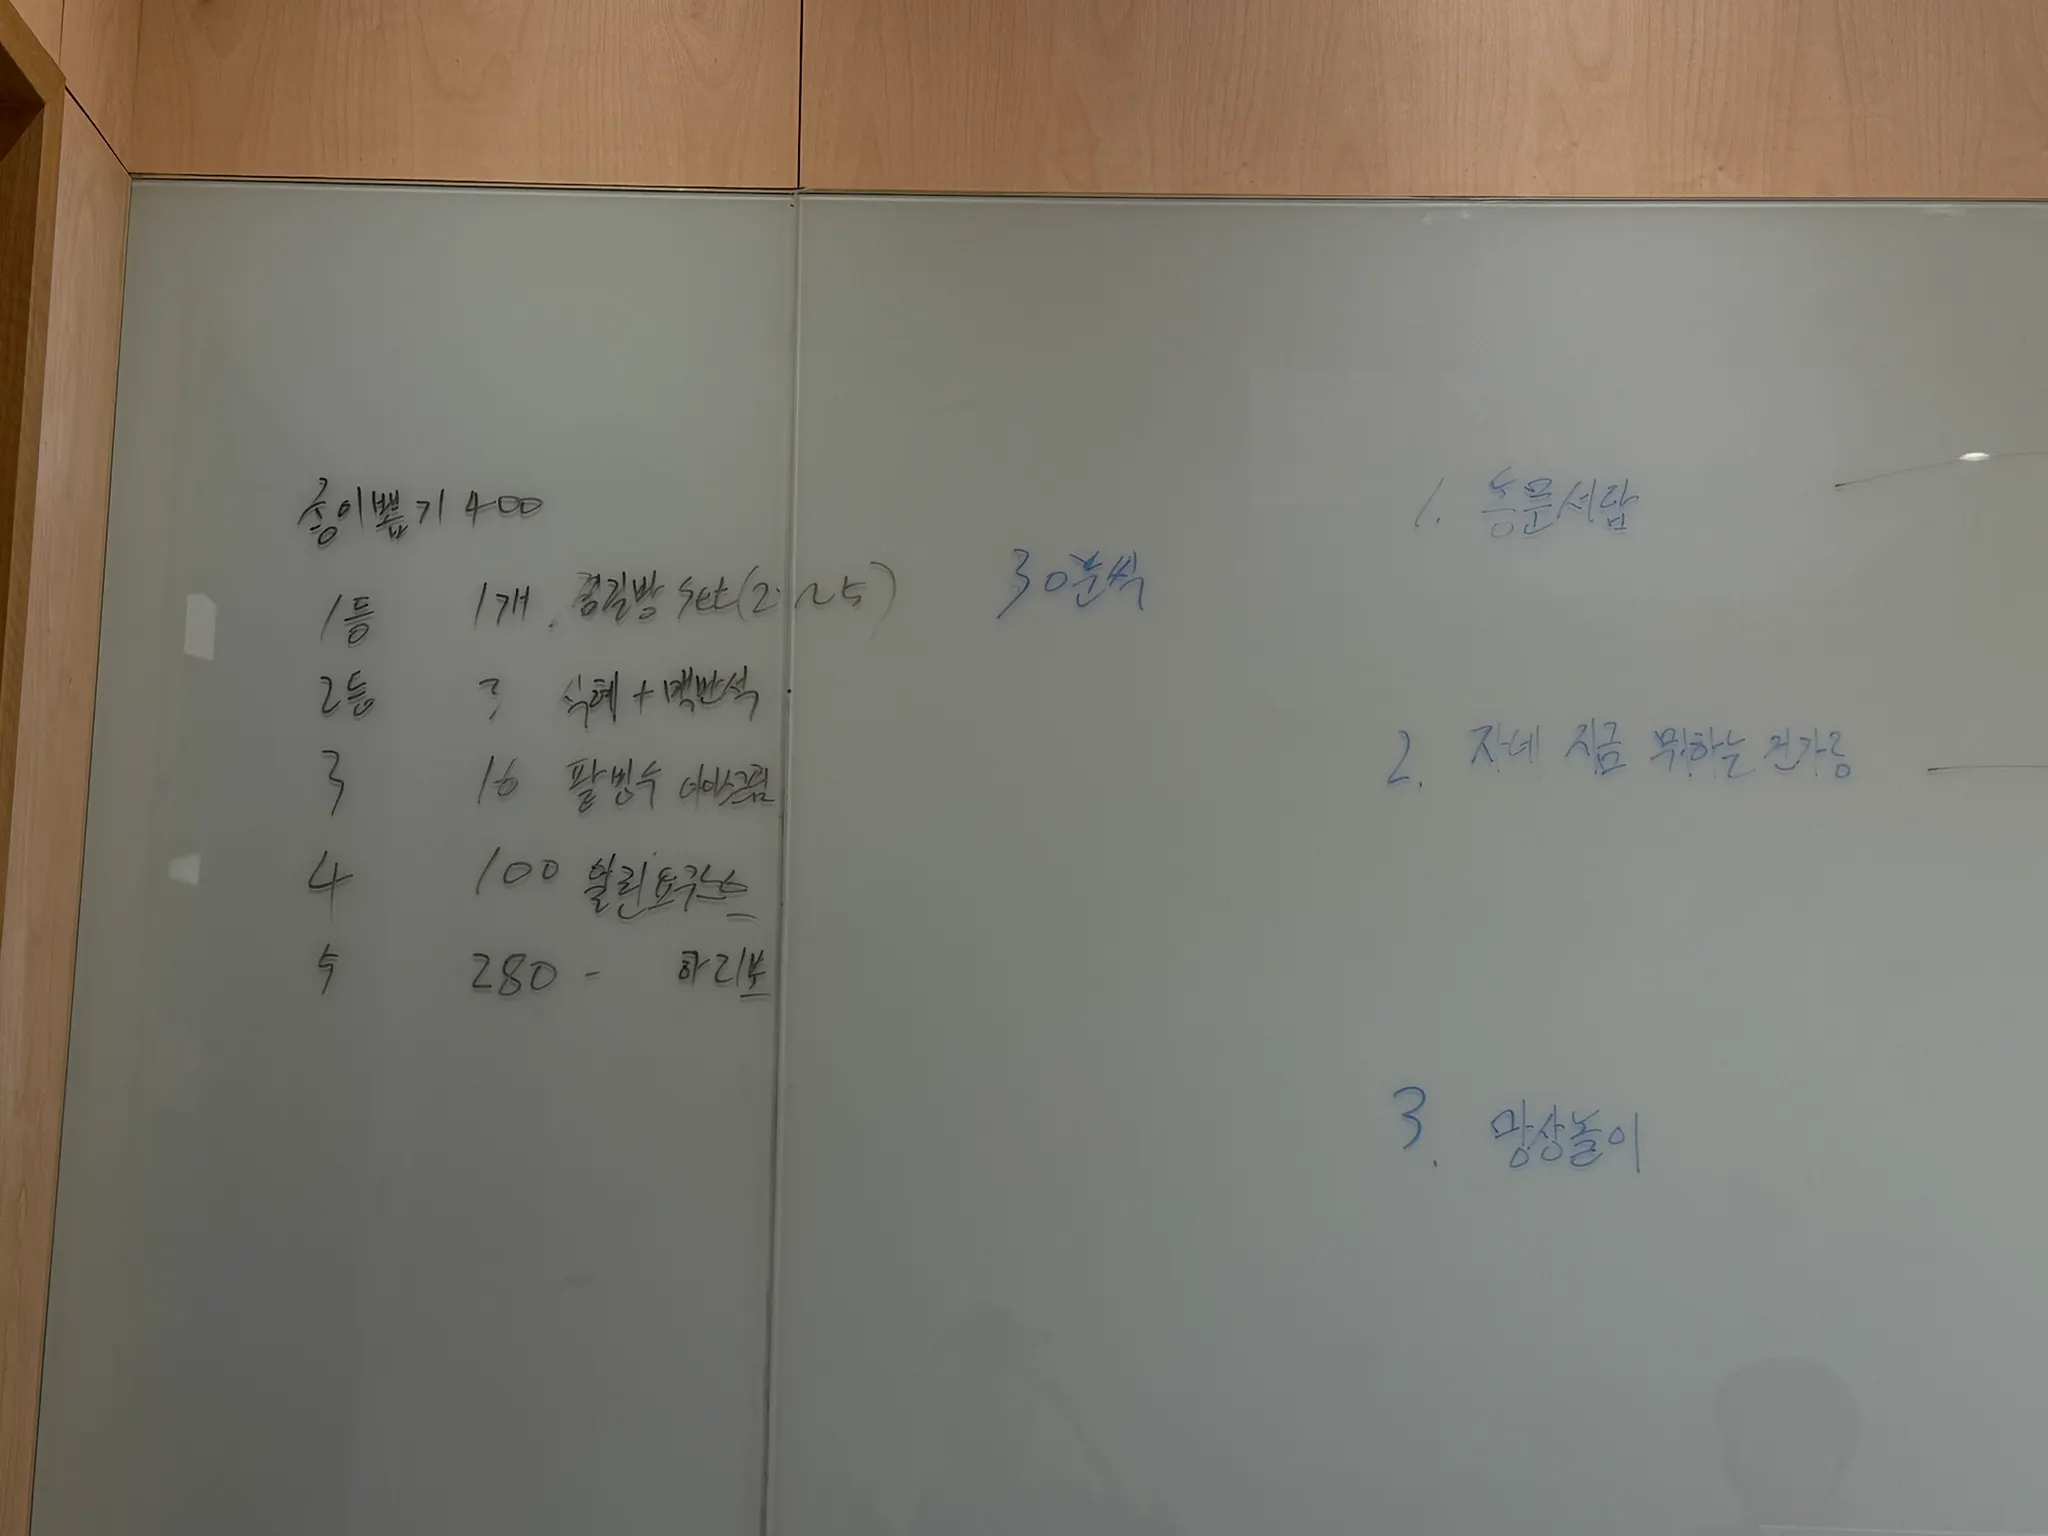 종이뽑기 400
1등 1개. 찜질방 set(2~25)
2등 3 식혜 + 맥반석
3 16 팥빙수 아이스크림
4 100 불린요구스
5 280 - 하리보
30분씩
1. 동문서답
2. 자네 지금 뭐하는 건가용
3. 망상놀이